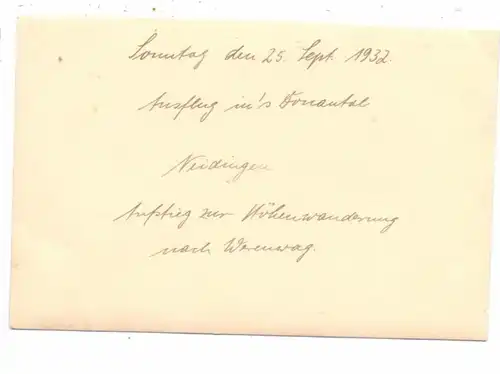 Sonntag den 25. Sept. 1932.
Ausflug in's Donautal
Neidingen
Aufstieg zur Höhenwanderung
nach Werenwag.